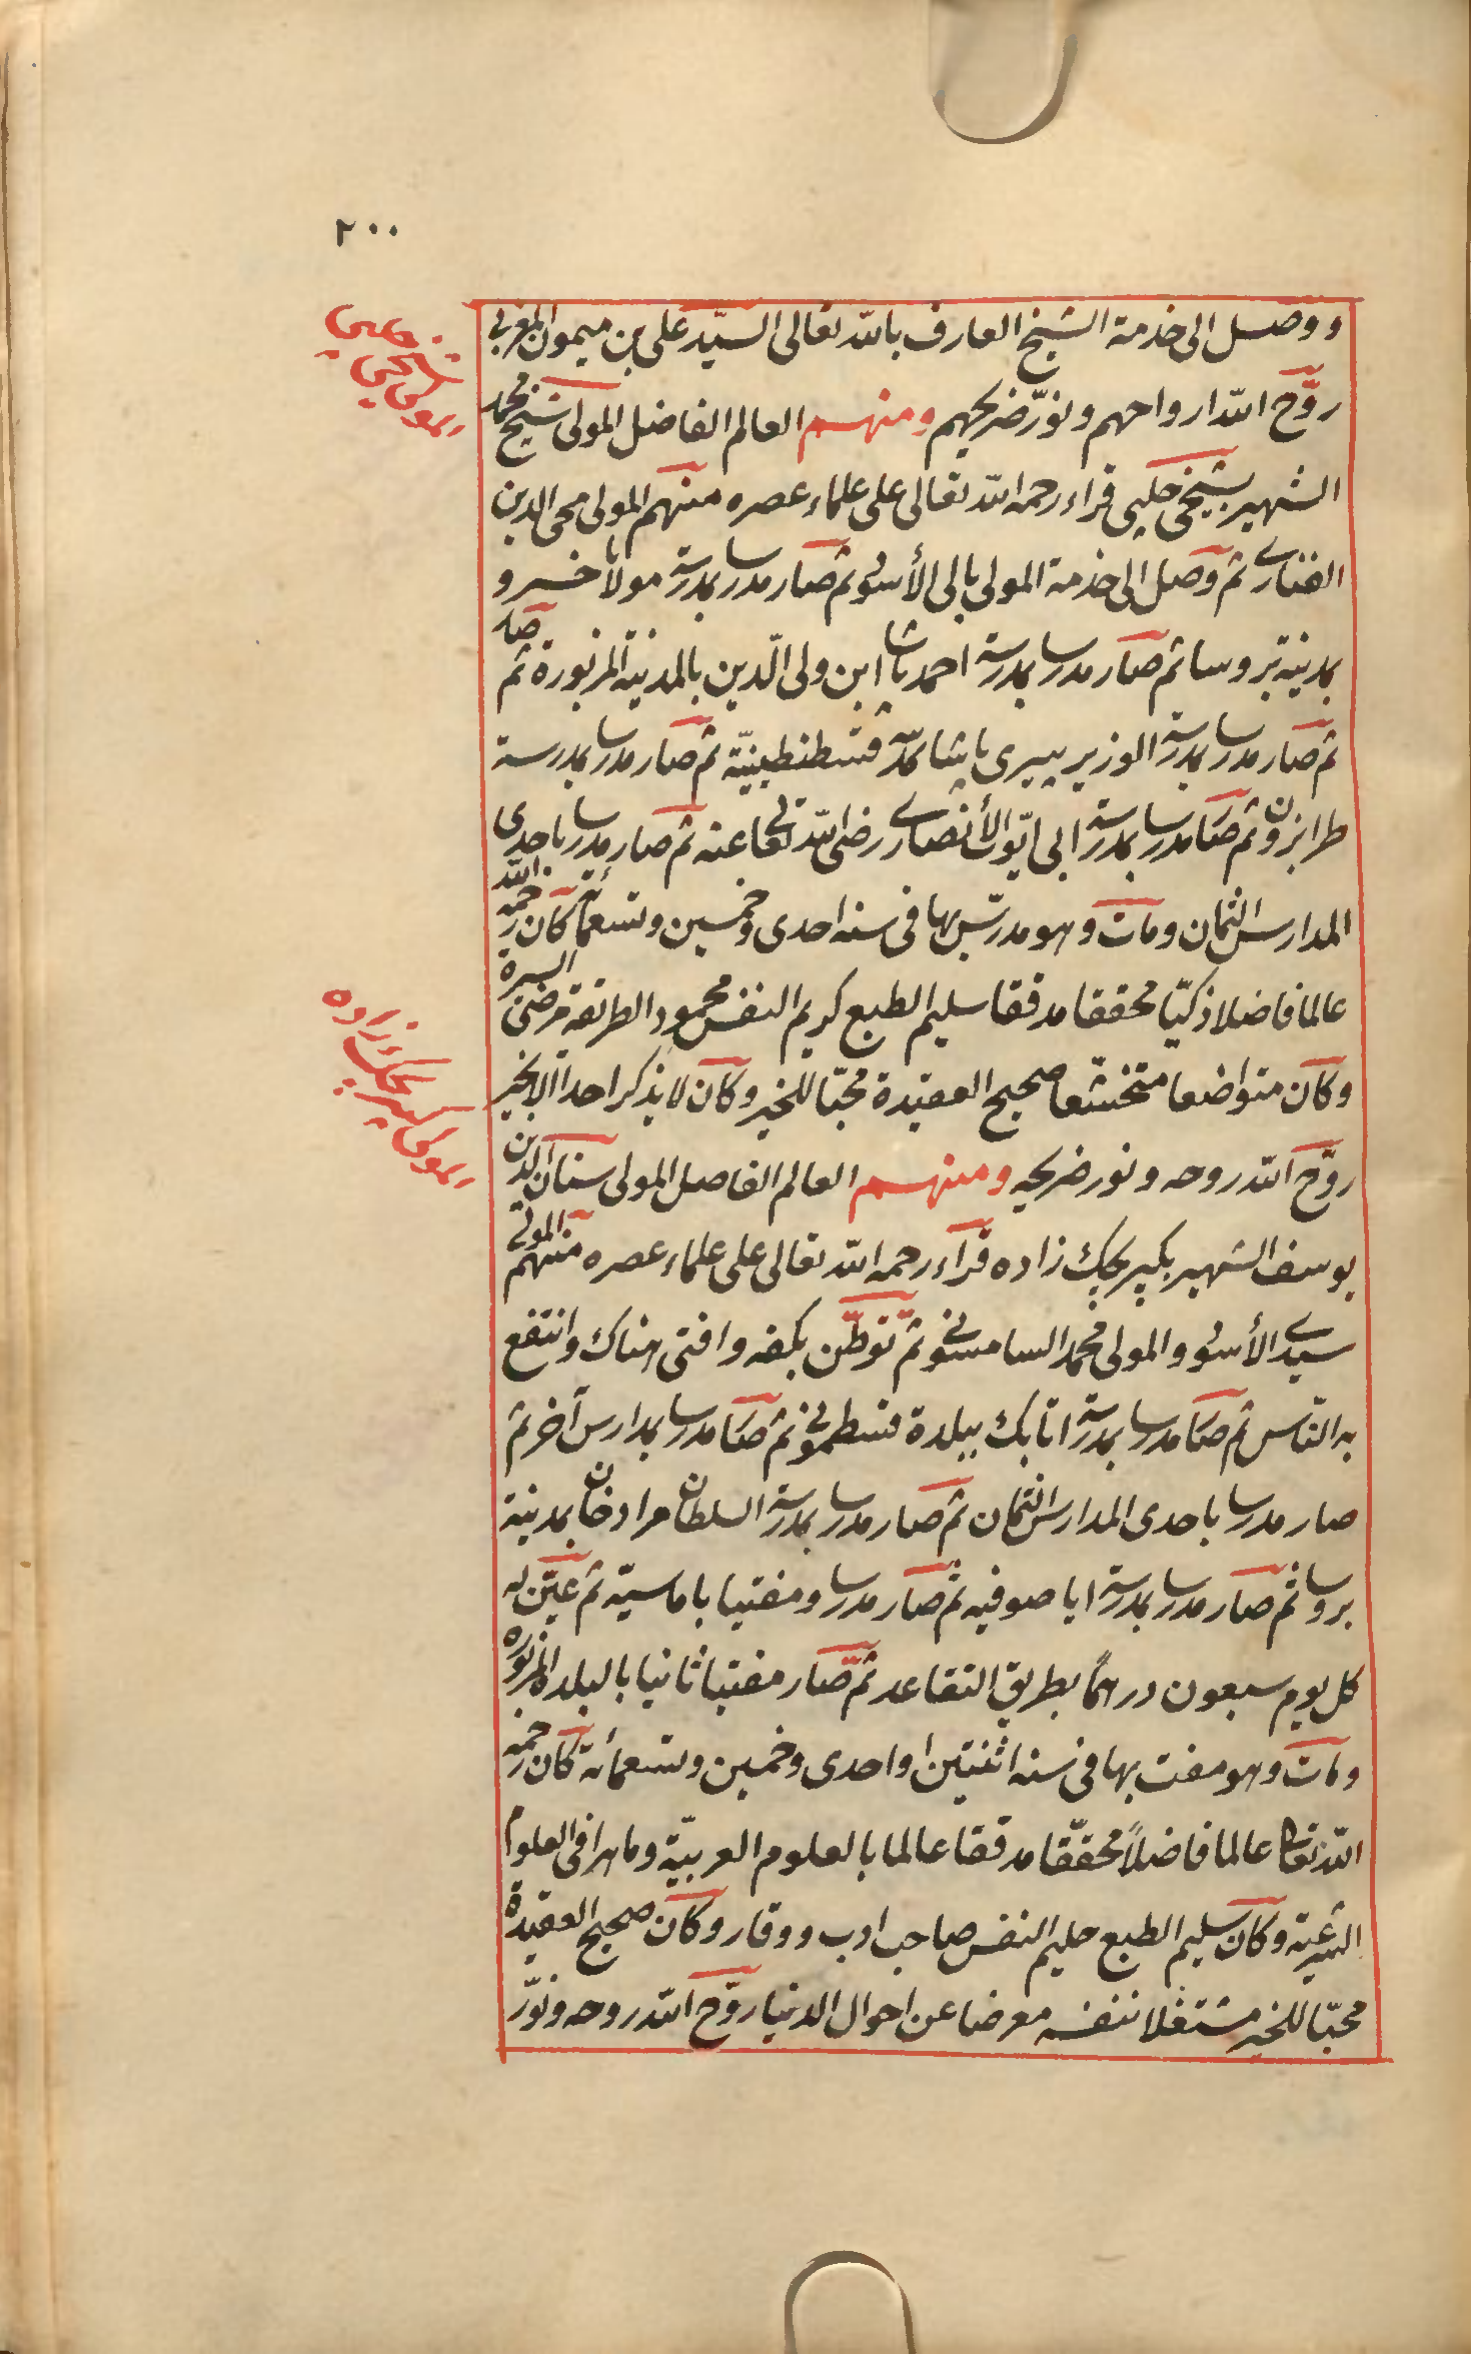 ٢٠٠
ووصل الى خدمة الشيخ العارف بالله تعالى السيّد على بن ميمون المغربى
روّح الله ارواحهم ونوّر ضريحهم ومنهم العالم الفاضل المولى شيخ محمد
المولى شيخى چلبى
الشهير بشيخى چلبى قراء رحمه الله تعالى على علماء عصره منهم المولى محى الدين
الفنارى ثم وصل الى خدمة المولى بالى الأسود ثم صار مدرسا بمدرسة مولانا خسرو
بمدينة بروسا ثم صار مدرسا بمدرسة احمد پاشا ابن ولى الّدين بالمدينة المزبورة ثم صار
ثم صار مدرسا بمدرسة الوزير پيرى پاشا بمدينة قسطنطينيّة ثم صار مدرسا بمدرسة
طرابزون ثم صار مدرسا بمدرسة ابى ايّوب الأنصارى رضى الله تعالى عنه ثم صار مدرسا باحدى
المدارس الثمان ومات وهو مدرّس بها فى سنه احدى وخمسين وتسعمائة كان رحمه الله
عالما فاضلا ذكيّا محققا مدققا سليم الطبع كريم النفس محمود الطريقة مرضىّ السيرة
وكان متواضعا متخشّعا صحيح العقيدة محبّا للخير وكان لا يذكر احدا الا بخير
روّح الله روحه ونور ضريحه ومنهم العالم الفاضل المولى سنان الدين
المولى كپرىجك زاده
يوسف الشهير بكپرىجك زاده قراء رحمه الله تعالى على علماء عصره منهم المولى
سيدى الأسود والمولى محمد السامسونى ثم توطّن بكفه وافتى هناك وانتفع
به النّاس ثم صار مدرسا بمدرسة اتابك ببلدة قسطمونى ثم صار مدرسا بمدارس آخر ثم
صار مدرسا باحدى المدارس الثمان ثم صار مدرسا بمدرسة السلطان مراد خان بمدينة
بروسا ثم صار مدرسا بمدرسة ايا صوفيه ثم صار مدرسا ومفتيا باماسيّة ثم عيّن له
كل يوم سبعون درهمًا بطريق التقاعد ثم صار مفتيا ثانيا بالبلده المزبوره
ومات وهو مفت بها فى سنه اثنتين او احدى وخمسين وتسعمائة كان رحمه
الله تعالى عالما فاضلاً محقّقا مدققا عالما بالعلوم العربيّة وماهرا فى العلوم
الشرعية وكان سليم الطبع حليم النفس صاحب ادب ووقار وكان صحيح العقيدة
محبّا للخير مشتغلا بنفسه معرضا عن احوال الدنيا روّح الله روحه ونوّر